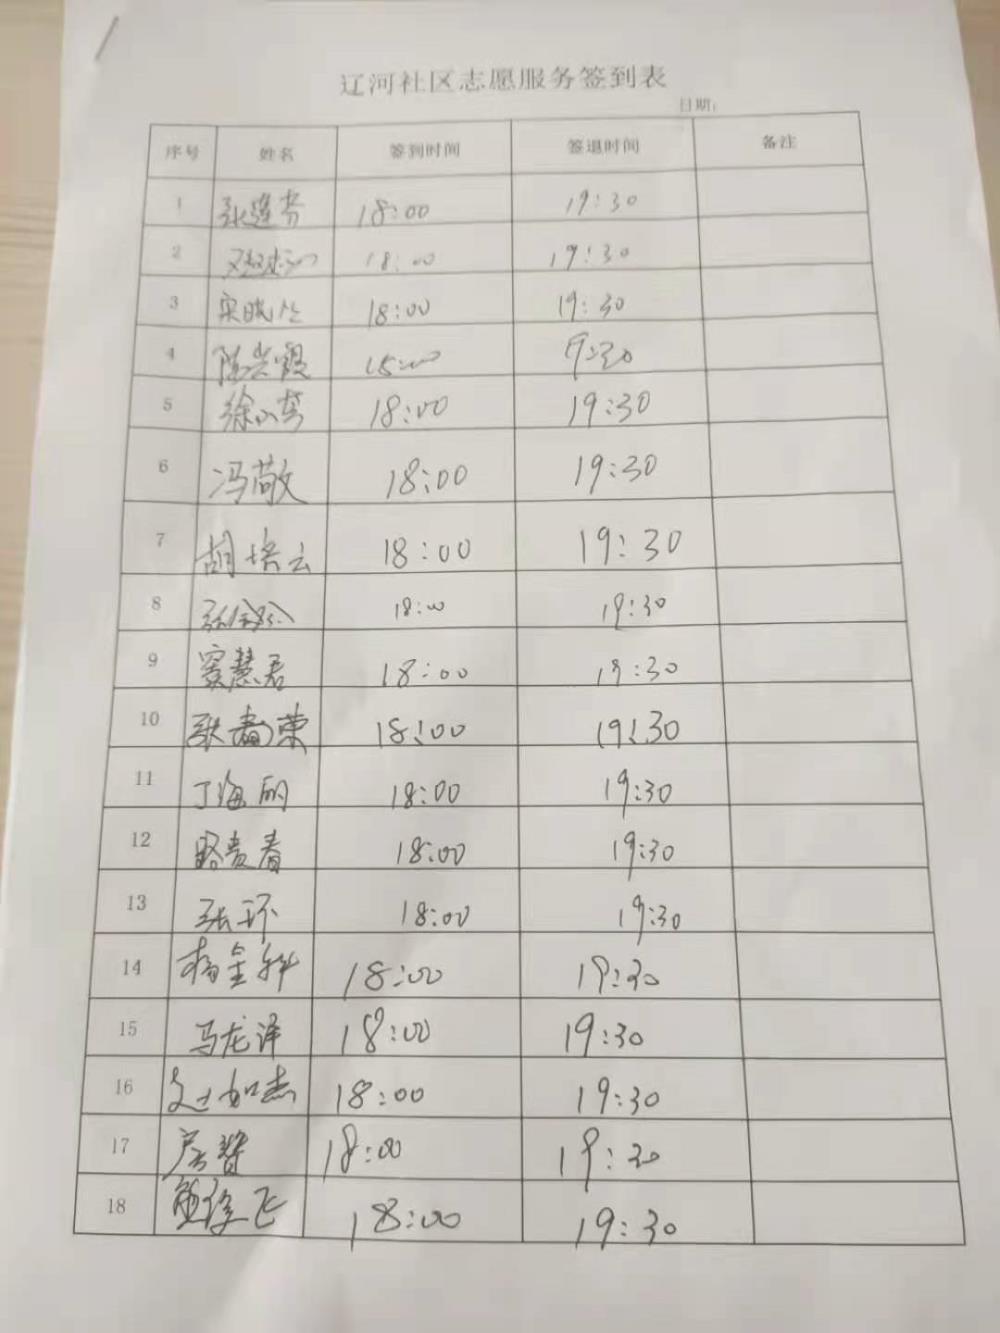 辽河社区志愿服务签到表
日期:
序号 姓名 签到时间 签退时间 备注
1 张莲芳 18:00 19:30
2 18:00 19:30
3 宋晓 18:00 19:30
4 陈兴霞 18:00 9:30
5 徐 18:00 19:30
6 冯敬 18:00 19:30
7 胡培云 18:00 19:30
8 18:00 19:30
9 窦慧君 18:00 19:30
10 张春荣 18:00 19:30
11 丁海丽 18:00 19:30
12 路贵春 18:00 19:30
13 张环 18:00 19:30
14 杨 18:00 19:30
15 马龙泽 18:00 19:30
16 18:00 19:30
17 18:00 19:30
18 飞 18:00 19:30